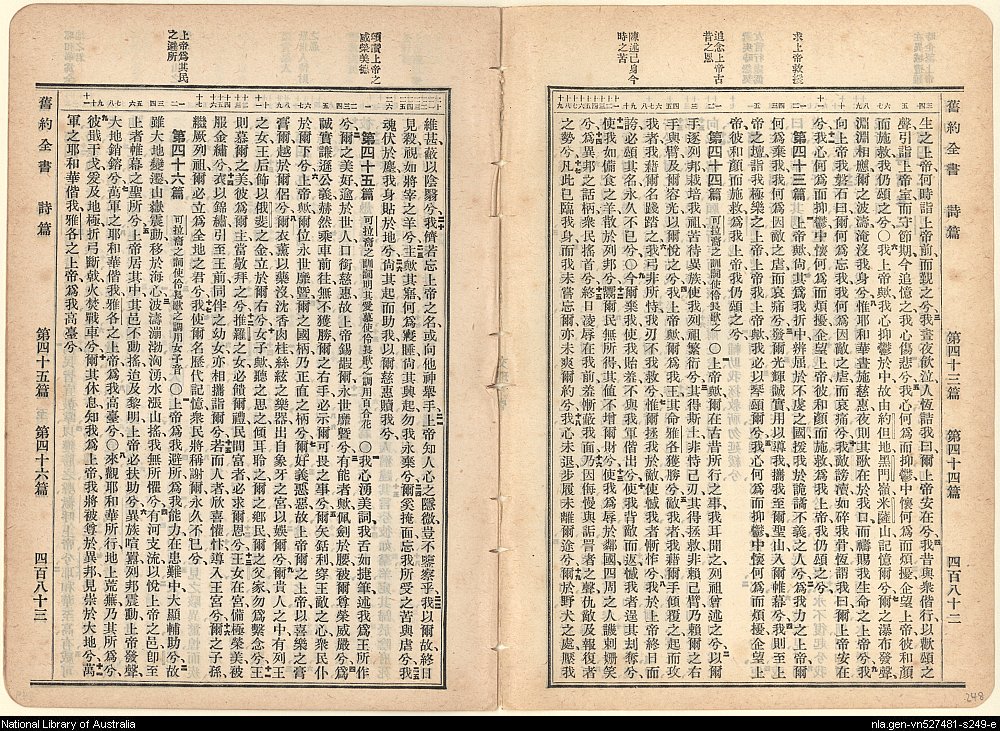 時之苦
陳述己身今
昔之恩
追念上帝古
求上帝救援
舊約全書　詩篇　第四十三篇　第四十四篇　四百八十二
生之上帝何時詣上帝前而覲之兮我晝夜飲泣人恆詰我曰爾上帝安在兮我昔與衆偕行以歡頌之
聲引詣上帝室而守節期今追憶之我心傷悲兮我心何爲而抑鬱中懷何爲而煩擾企望上帝彼和顏
而施救我仍頌之兮〇我上帝歟我心抑鬱於中故由約但地黑門嶺米薩山記憶爾兮爾之瀑布發聲
淵淵相應爾之波濤淹沒我身兮惟耶和華晝施慈惠夜則其歌在於我口而禱賜我生命之上帝兮我
向上帝我磐石曰何爲忘我何爲因敵之虐而哀痛兮我敵謗瀆如碎我骨恆詰我曰爾上帝安在
兮我心何爲而抑鬱中懷何爲而煩擾企望上帝彼和顏而施救爲我上帝我仍頌之兮
第四十三篇　上帝歟鞫我爲我折中辨屈於不虔之國援我於詭譎不義之人兮爾爲我力之上帝
何爲棄我我何爲因敵之虐而哀痛兮發爾光輝誠實用以導我攜我至爾聖山入爾帷幕兮我則至上
帝之壇詣我極樂之上帝上帝我之上帝歟我必以琴頌爾兮我心何爲而抑鬱中懷何爲而煩擾企望上
帝彼和顏而施救爲我上帝我仍頌之兮
第四十四篇　可拉裔之訓詞使伶長歌之〇上帝歟爾在古昔所行之事我耳聞之列祖曾述之兮以爾
手逐列邦栽培我祖苦待異族使我列祖繁衍兮其得斯土非恃己刃其得拯救非賴己臂乃賴爾之右
手與臂及爾容光以爾悅之兮上帝歟爾爲我王其命雅各獲勝兮我必藉爾推敵藉爾名傾覆之起而攻
我者我藉爾名踐踏之兮我弓非所恃我刃不我救兮惟爾拯我於敵使憾我者慚怍兮我於上帝終日而
誇必頌其名永久不已兮〇今爾棄我使我貽羞不與我軍偕出兮使我背敵而返憾我者遂其刦奪兮
使我如備食之羊散於列邦兮鬻爾民無所得其值不增爾財兮使我爲辱於鄰國四周之人譏刺姍笑
兮爲異邦之話柄衆民搖首兮終日凌辱在我前羞慚蔽我面乃因侮慢與詬詈者之聲仇敵及報復者
之勢兮凡此已臨我身而我未嘗忘爾亦未爽爾約兮我心未退步履未離爾途兮爾於野犬之處壓我
頌讚上帝之
威榮美德
上帝爲其民
之避所
維甚蔽以陰翳兮我儕若忘上帝之名或向他神舉手上帝知人心之隱微豈不鑒察乎我以爾故終日
見殺視如將宰之羊兮主歟其寤何爲寢睡尚其興起勿我永棄兮爾奚掩面而忘我所受之苦與虐兮我
魂伏於塵我身貼於地兮尚其起而助我以爾慈惠贖我兮
第四十五篇　可拉裔之訓詞明其愛慕使伶長歌之調用百合花〇我心湧美詞我舌如捷筆述我爲王所作
兮爾之美好逾於世人口銜慈惠故上帝錫嘏爾永世靡暨兮有能者歟佩劍於腰被爾尊榮威嚴兮爲
誠實謙遜公義赫然乘車前往無不獲勝爾之右手必示爾可畏之事兮爾矢銛利穿王敵之心衆民仆
於爾下兮上帝歟爾位永世靡暨爾之國柄乃正直之柄兮爾好義惡惡故上帝爾之上帝以喜樂之膏
膏爾越於爾侶兮爾衣薰以藥沈香肉桂絲絃之樂器出自象牙之宮以娛爾兮爾貴人之中有列王
之女王后飾以俄斐之金立於爾右兮女子歟聽之思之傾耳聆之爾之鄉民爾之父家勿爲繫念兮王
則慕爾之美彼爲爾主當敬拜之兮推羅之女必餽爾禮民間富者必求爾恩兮王女在宮備極榮美被
服金繡兮衣以錦繡引至王前同伴之幼女亦相攜詣爾兮若而人者欣喜懽忭導入王宮兮爾之子孫
繼厥列祖爾必立爲全地之君兮我使爾名歷代記憶衆民將稱謝爾永久不已兮
第四十六篇　可拉裔之訓使伶長歌之調用女子音〇上帝爲我避所爲我能力在患難中大顯輔助兮故
雖大地變遷山嶽震動移於海心波濤澎渤漰湧水漲山搖我無所懼兮有河支流以悅上帝之邑卽至
上者帷幕之聖所兮上帝居其中其邑不動搖迨及黎明上帝必扶助兮異族喧囂列邦震動上帝發聲
大地銷鎔兮萬軍之耶和華偕我雅各之上帝爲我高臺兮〇來觀耶和華所行地上荒蕪乃其所爲兮
彼戢干戈爰及地極折弓斷戟火焚戰車兮爾其休息知我爲上帝我將被尊於異邦見崇於大地兮萬
軍之耶和華偕我雅各之上帝爲我高臺兮
舊約全書　詩篇　第四十五篇　第四十六篇　四百八十三
248
National Library of Australia
nla.gen-vn527481-s249-e